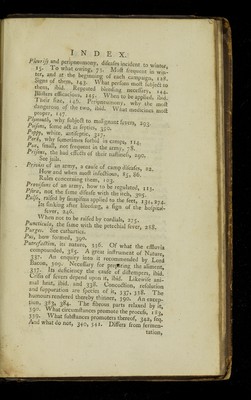 INDEX.
Pleurisy and peripneumony, diseases incident to winter,
15. To what owing, 75. Most frequent in win-
ter, and at the beginning of each campaign, 128.
Signs of them, 143. What persons most subject to
them, ibid. Repeated bleeding necessary, 144.
Blisters efficacious, 145. When to be applied, ibid.
Their size, 146. Peripneumony, why the most
dangerous of the two, ibid. What medicines most
proper, 147.
Plymouth, why subject to malignant fevers, 293.
Poisons, some act as septics, 350.
Poppy, white, antiseptic, 317.
Pork, why sometimes forbid in camps, 114.
Pox, small, not frequent in the army, 78.
Prisons, the bad effects of their nastiness, 290.
See jails.
Privies of an army, a cause of camp diseases,
How and when most infectious, 85, 86.
Rules concerning them, 103.
Provisions of an army, how to be regulated, 113.
Psora, not the same disease with the itch, 305.
Pulse, raised by sinapisms applied to the feet, 131, 274.
Its sinking after bleeding, a sign of the hospital-
fever, 246.
When not to be raised by cordials, 275.
Puncticula, the same with the petechial fever, 268.
Purges. See cathartics.
Pus, how formed, 390.
Putrefaction, its nature, 336. Of what the effluvia
compounded, 385. A great instrument of Nature,
337. An enquiry into it recommended by Lord
Bacon, 309. Necessary for preparing the aliment,
357. Its deficiency the cause of distempers, ibid.
Crisis of fevers depend upon it, ibid. Likewise ani-
mal heat, ibid. and 338. Concoction, resolution
and suppuration are species of it, 337, 338. The
humours rendered thereby thinner, 390. An excep-
tion, 383, 384. The fibrous parts relaxed by it,
390. What circumstances promote the process, 165,
359. What substances promoters thereof, 342, seq.
And what do not, 340, 341. Differs from fermen-
tation,